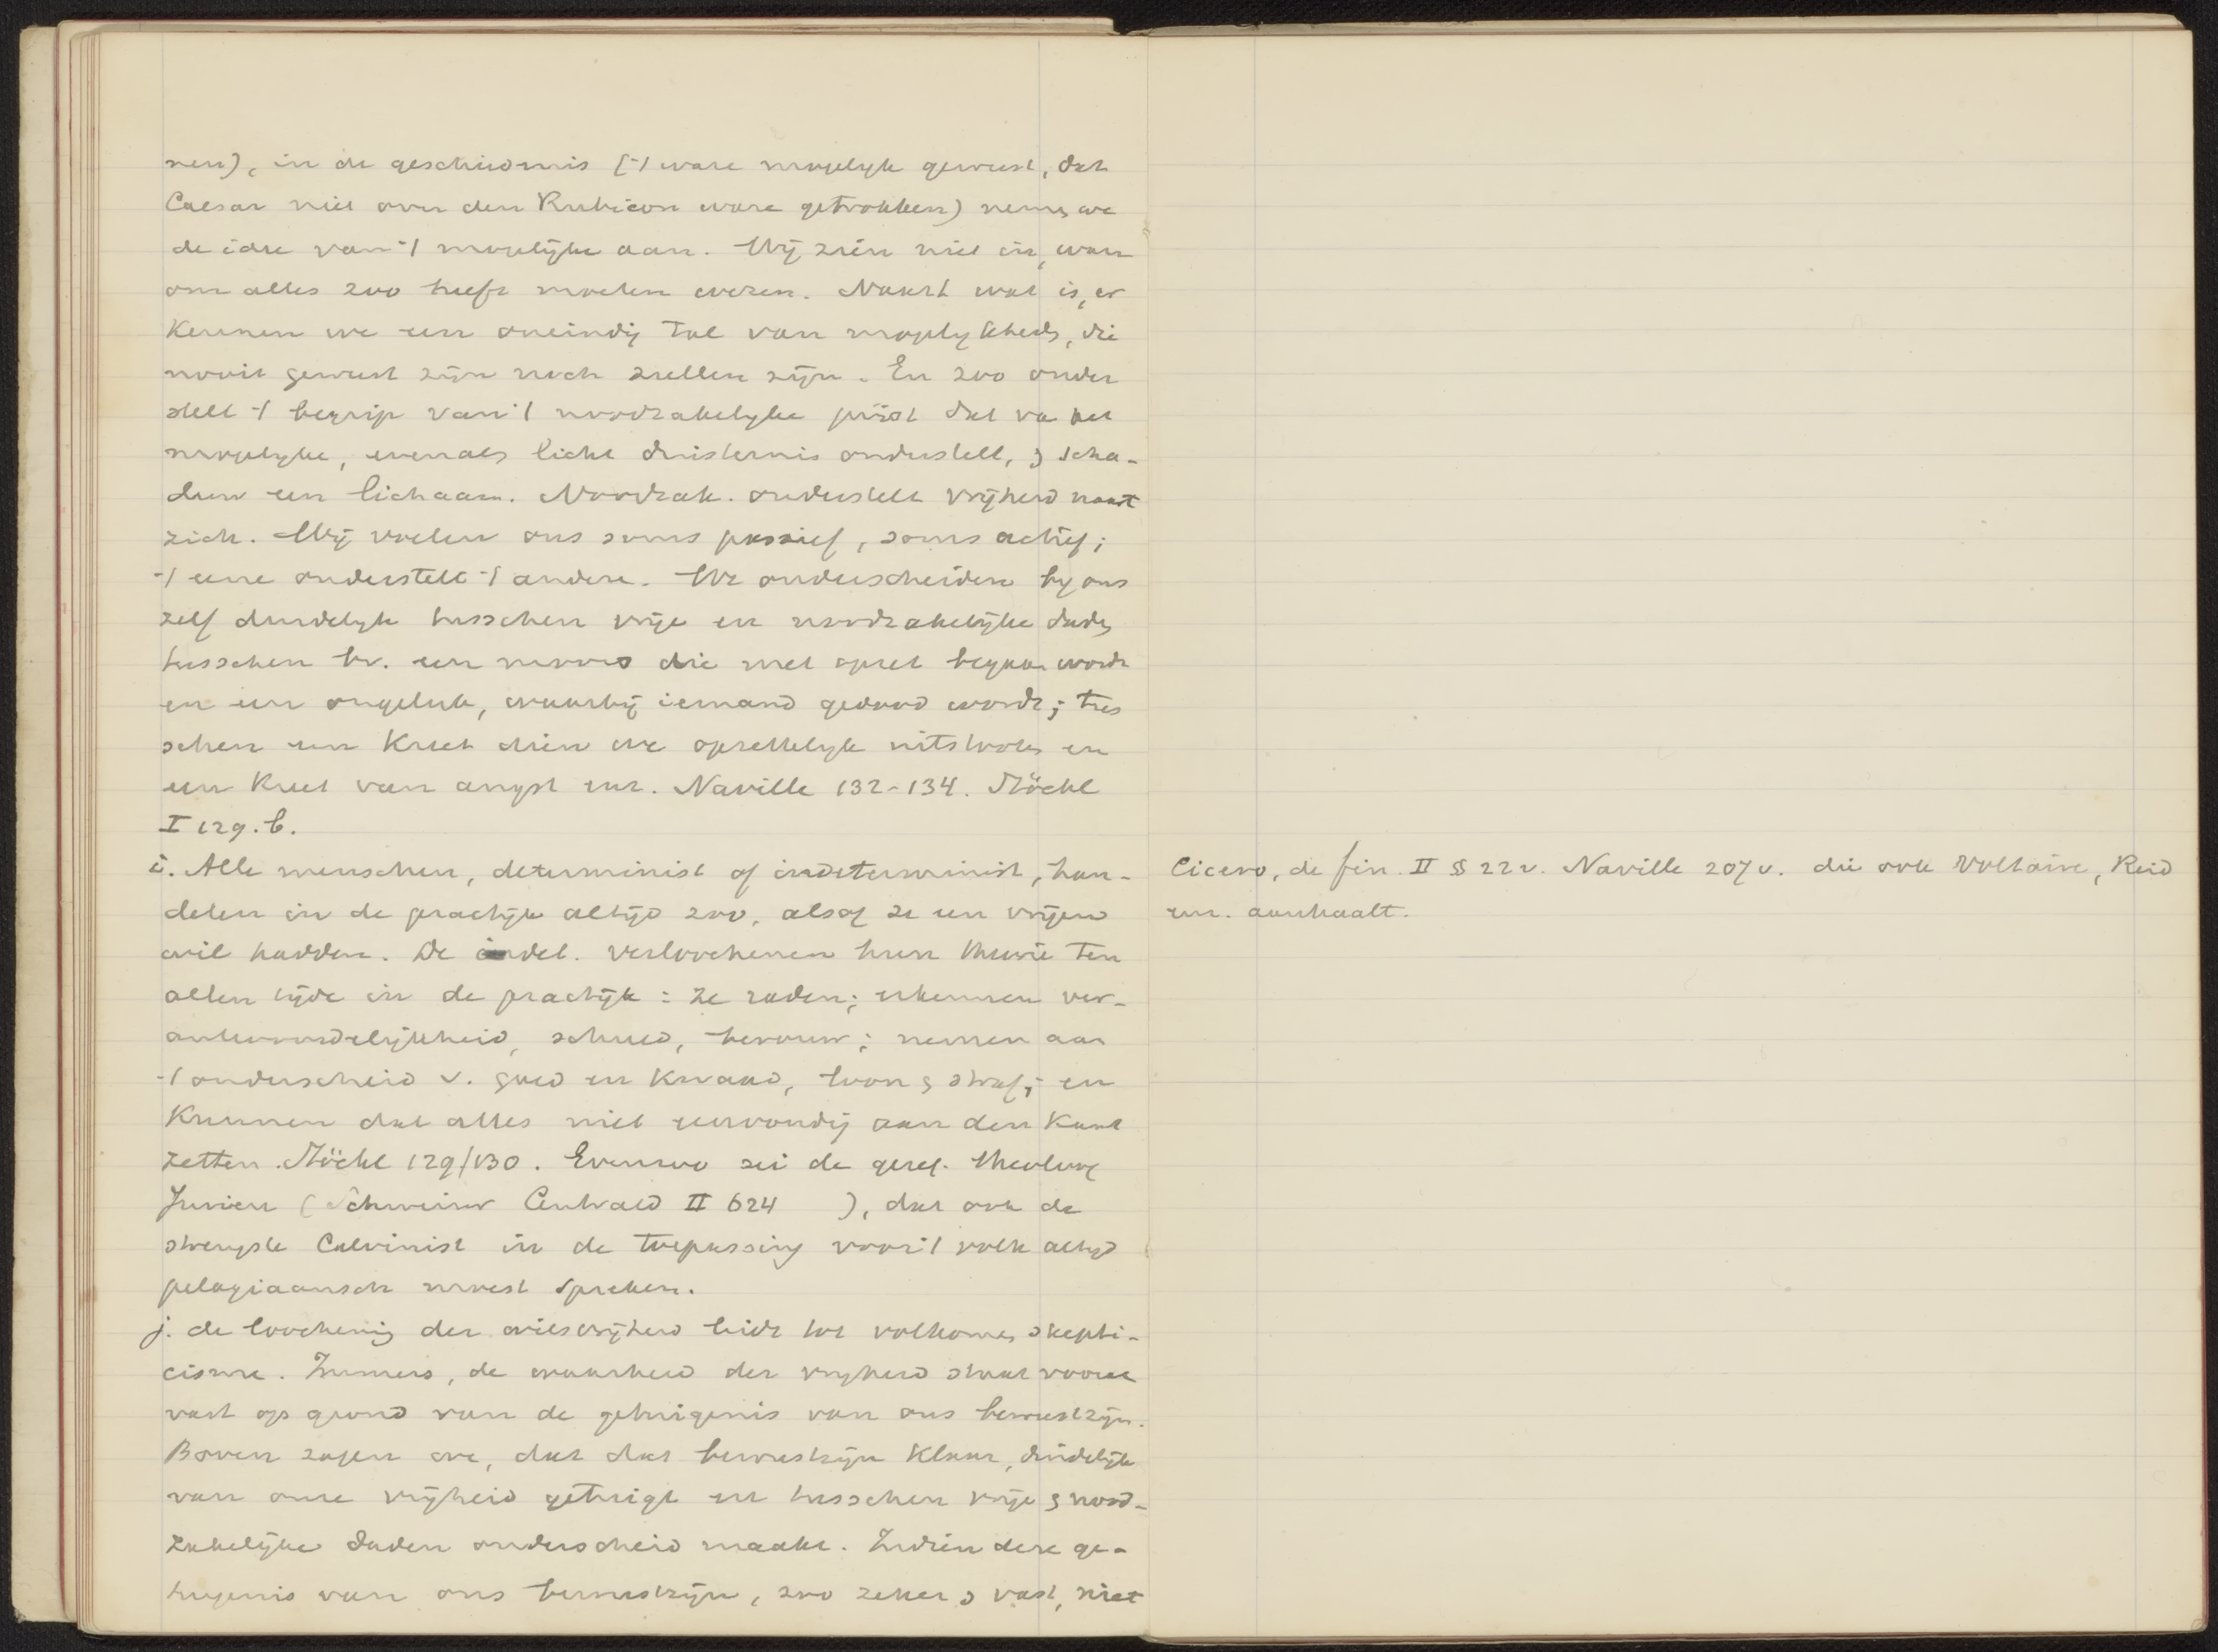 nen), in de geschiednis ('t ware mogelyk geweest, dat
Caesar niet over den Rubicon ware getrokken) nemen we
de idee van 't mogelijke aan. Wij zien niet in, waar
om alles zoo heeft moeten wezen. Naast wat is, er
kennen we een oneindig tal van mogelykheden, die
nooit geweest zijn noch zullen zijn. En zoo onder
stelt 't begrip van 't noodzakelyke juist dat va het
mogelyke, evenals licht duisternis onderstelt, & scha-
duw een lichaam. Noodzak. onderstelt vrijheid naast
zich. Wij voelen ons soms passief, soms actief;
't eene onderstelt 't andere. We onderscheiden by ons
zelf duidelyk tusschen vrije en noodzakelijke daden,
tusschen bv. een moord die met opzet begaan wordt
en een ongeluk, waarbij iemand gedood wordt; tus
schen een kreet dien we opzettelyk uitstooten en
een kreet van angst enz. Naville 132-134. Stöckl
I 129.b.
i. Alle menschen, determinist of indeterminist, han-
delen in de practijk altijd zoo, alsof ze een vrijen
wil hadden. De indet. verloochenen hun theorie ten
allen tijde in de practijk: ze raden; erkennen ver-
antwoordelijkheid, schuld, berouw; nemen aan
't onderscheid v. goed en kwaad, loon & straf; en
kunnen dat alles niet eenvoudig aan den kant
zetten. Stöckl 129/130. Evenzoo zei de geref. theoloog
Jurieu (Schweizer Centrald II 624 ), dat ook de
strengste Calvinist in de toepassing voor 't volk altyd
pelagiaansch moest spreken.
j. de loochening der wilsvrijheid leidt tot volkomen skepti-
cisme. Immers, de waarheid der vryheid staat vooral
vast op grond van de getuigenis van ons bewustzijn.
Boven zagen we, dat dat bewustzijn klaar, duidelijk
van onze vrijheid getuigt en tusschen vrije & nood-
zakelijke daden onderscheid maakt. Indien deze ge-
tuigenis van ons bewustzijn, zoo zeker & vast, niet
Cicero, de fin. II § 22 v. Naville 207 v. die ook Voltaire, Reid
enz. aanhaalt.